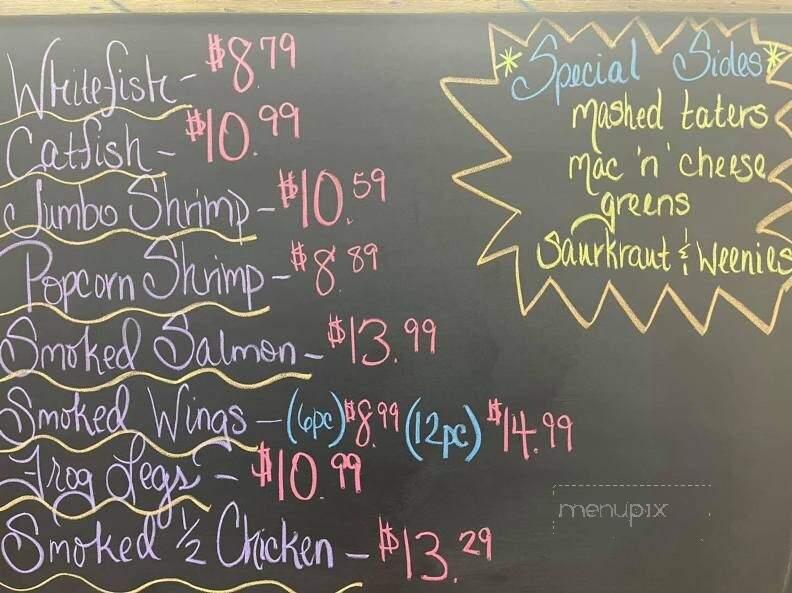 Whitefish - $8.79
Catfish - $10.99
Jumbo Shrimp - $10.59
Popcorn Shrimp - $8.89
Smoked Salmon - $13.99
Smoked Wings - (6pc) $8.99 (12pc) $14.99
Frog Legs - $10.99
Smoked 1/2 Chicken - $13.29
*Special Sides*
mashed taters
mac 'n' cheese
greens
Saurkraut & Weenies
menupix